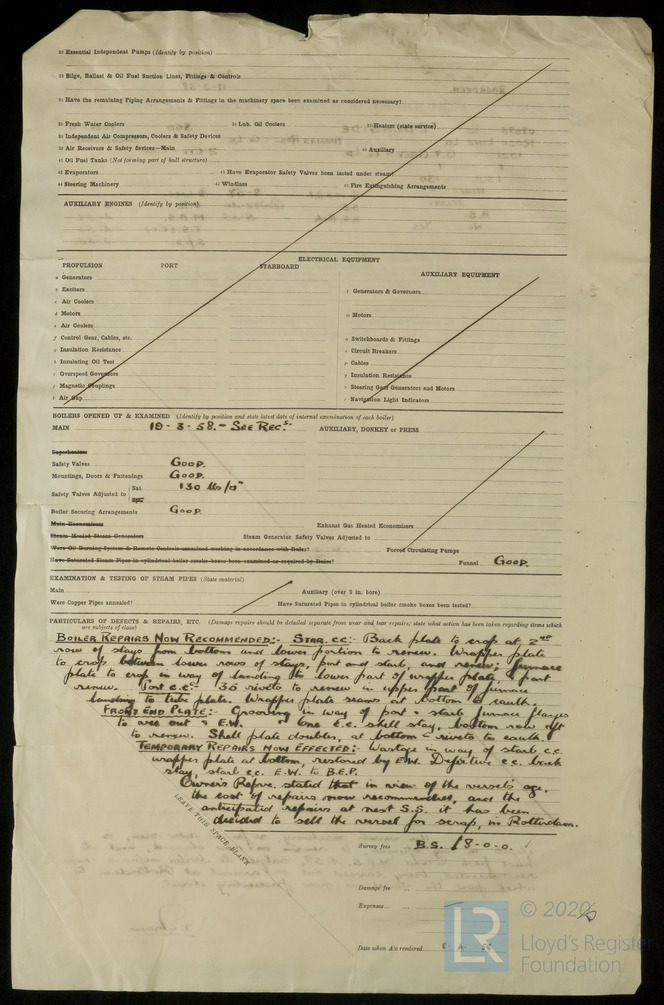 Essential Independent Pumps (Identify by position)
Bilge, Ballast & Oil Fuel Suction Lines, Fittings & Controls
Have the remaining Piping Arrangements & Fittings in the machinery space been examined as considered necessary?
Fresh Water Coolers Lub. Oil Coolers Heaters (state service)
Independent Air Compressors, Coolers & Safety Devices
Air Receivers & Safety devices—Main Auxiliary
Oil Fuel Tanks (Not forming part of hull structure)
Evaporators Have Evaporator Safety Valves been tested under steam?
Steering Machinery Windlass Fire Extinguishing Arrangements
AUXILIARY ENGINES (Identify by position)
ELECTRICAL EQUIPMENT
PROPULSION PORT STARBOARD
AUXILIARY EQUIPMENT
a Generators
b Exciters
c Air Coolers
d Motors
e Air Coolers
f Control Gear, Cables, etc.
g Insulation Resistance
h Insulating Oil Test
i Overspeed Governors
j Magnetic Couplings
k Air Gap
l Generators & Governors
m Motors
n Switchboards & Fittings
o Circuit Breakers
p Cables
q Insulation Resistance
r Steering Gear Generators and Motors
s Navigation Light Indicators
BOILERS OPENED UP & EXAMINED (Identify by position and state latest date of internal examination of each boiler)
MAIN 19-3-58.- SEE REC.s AUXILIARY, DONKEY or PRESS
Superheaters
Safety Valves GOOD.
Mountings, Doors & Fastenings GOOD.
Safety Valves Adjusted to Sat. 130 lbs/□"
Spt.
Boiler Securing Arrangements GOOD.
Main Economisers Exhaust Gas Heated Economisers
Steam Heated Steam Generators Steam Generator Safety Valves Adjusted to
Were Oil Burning System & Remote Controls examined working in accordance with Rules? Forced Circulating Pumps
Have Saturated Steam Pipes in cylindrical boiler smoke boxes been examined as required by Rules? Funnel GOOD.
EXAMINATION & TESTING OF STEAM PIPES (State material)
Main Auxiliary (over 3 in. bore)
Were Copper Pipes annealed? Have Saturated Steam Pipes in cylindrical boiler smoke boxes been tested?
PARTICULARS OF DEFECTS & REPAIRS, ETC. (Damage repairs should be detailed separate from wear and tear repairs; state what action has been taken regarding items which
are subjects of class)
BOILER REPAIRS NOW RECOMMENDED:- STAR.CC:- Back plate to crop at 2nd
row of stays from bottom and lower portion to renew. Wrapper plate
to crop between lower rows of stays, port and starb, and renew; furnace
plate to crop in way of landing to lower part of wrapper plate, & part
renew. PORT C.C:- 30 rivets to renew in upper part of furnace
landing to tube plate. Wrapper plate seams at bottom to caulk.
FRONT END PLATE:- Grooving in way of port & starb furnace flanges
to vee out & E.W. One E.C. shell stay, bottom row
to renew. Shell plate doubler, at bottom - rivets to caulk.
TEMPORARY REPAIRS NOW EFFECTED:- Wastage in way of starb c.c.
wrapper plate at bottom, restored by E.W. Defective c.c. back
stay, starb c.c. E.W. to B.E.P.
Owner's Repve. stated that in view of the vessel's age,
the cost of repairs now recommended, and the
anticipated repairs at next S.S. it has been
decided to sell the vessel for scrap, in Rotterdam.
LEAVE THIS SPACE BLANK
Survey fees B.S. 18-0-0.
Damage fee
Expenses
Date when A/c rendered
LR
© 2020
Lloyd's Register
Foundation